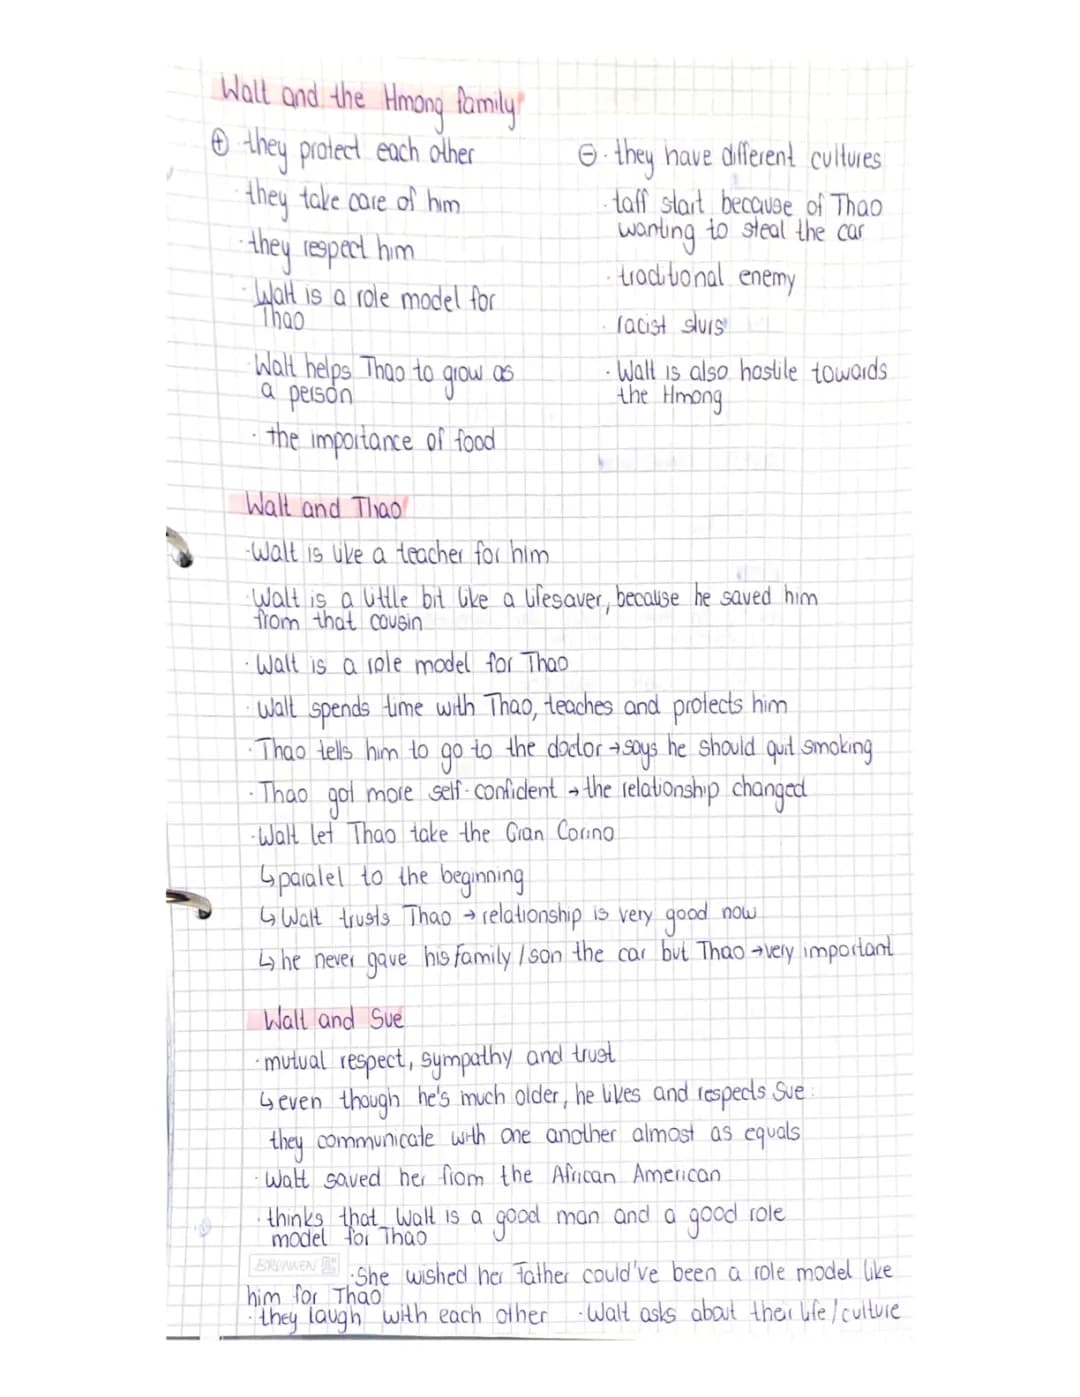 Walt and the Hmong family
⊕ · they protect each other
· they take care of him
· they respect him
· Walt is a role model for
Thao
· Walt helps Thao to grow as
a person
· the importance of food
⊖ · they have different cultures
· taff start because of Thao
wanting to steal the car
· traditional enemy
· racist slurs
· Walt is also hostile towards
the Hmong
Walt and Thao
· Walt is like a teacher for him
· Walt is a little bit like a lifesaver, because he saved him
from that cousin
· Walt is a role model for Thao
· Walt spends time with Thao, teaches and protects him
· Thao tells him to go to the doctor → says he should quit smoking
· Thao got more self-confident → the relationship changed
· Walt let Thao take the Gran Corino
↳ paralel to the beginning
↳ Walt trusts Thao → relationship is very good now
↳ he never gave his family / son the car but Thao → very important
Walt and Sue
· mutual respect, sympathy and trust
↳ even though he's much older, he likes and respects Sue:
they communicate with one another almost as equals
· Walt saved her from the African American
· thinks that Walt is a good man and a good role
model for Thao
BRUNNEN
· She wished her Father could've been a role model like
him for Thao
· they laugh with each other · Walt asks about their life / culture